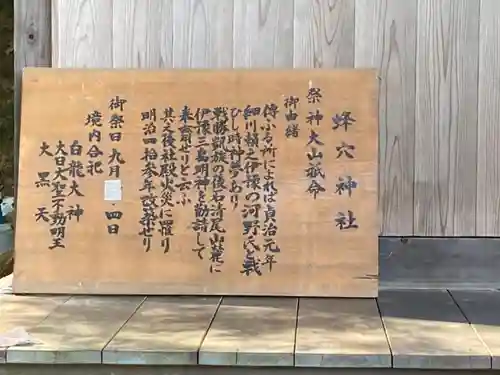 蜂穴神社
祭神大山祇命
御由緒
傳ふる所によれば貞治元年
細川頼之伊豫の河野氏と戰
ひし時神夢あり
戰勝凱旋の後石清尾山麓に
伊豫三島明神を勧請して
来斎せりと云ふ
其之後社殿火災に罹り
明治四拾参年改築せり
御祭日九月 四日
境内合祀
白龍大神
大日大聖不動明王
大黒天